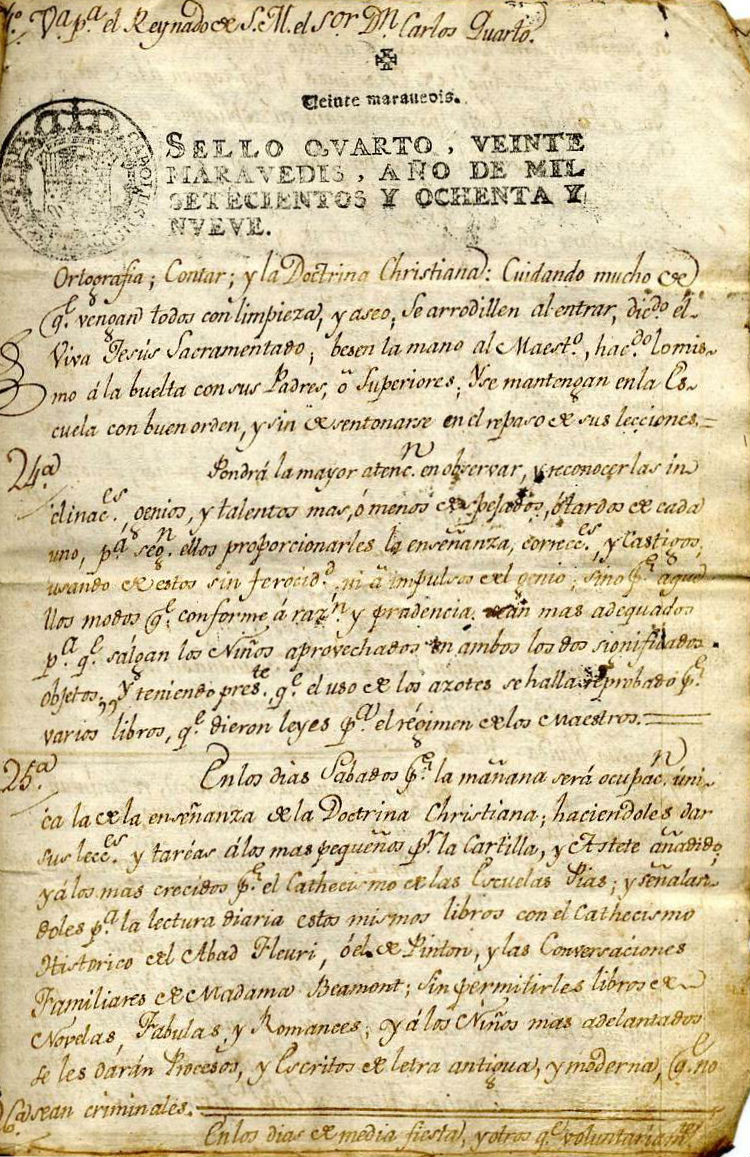 Va. pª el Reynado de S. M. el Sor Dn Carlos Quarto.
Veinte maravedis.
SELLO QVARTO, VEINTE
MARAVEDIS, AÑO DE MIL
SETECIENTOS Y OCHENTA Y
NVEVE.
Ortografia; Contar; y la Doctrina Christiana: Cuidando mucho de
q.e vengan todos con limpieza, y aseo; Se arrodillen al entrar, dicdo el
Viva Jesús Sacramentado; besen la mano al Maesto, hacdo lo mis-
mo á la buelta con sus Padres, ó Superiores; Y se mantengan en la Es-
cuela con buen orden, y sin desentonarse en el repaso de sus lecciones.=
24.a Pondrá la mayor atencn. en observar, y reconocer las in
clinaces., genios, y talentos mas, ó menos despejados, ó tardos de cada
uno, pª. segn. ellos proporcionarles la enseñanza, correces., y Castigos,
usando de estos sin ferocidd. ni á impulsos del genio; sino pr. aque
llos modos q.e conforme á razn. y prudencia, sean mas adequados
pª. q.e salgan los Niños aprovechados en ambos los dos significados
objetos. Y teniendo preste. q.e el uso de los azotes se halla reprobado pr.
varios libros, q.e dieron leyes pª. el régimen de los Maestros.=
25.a En los dias Sabados pr. la mañana será ocupacn. úni
ca la de la enseñanza de la Doctrina Christiana; haciendoles dar
sus lecces. y taréas á los mas pequeños pr. la Cartilla, y Astete añadido;
y á los mas crecidos pr. el Cathecismo de las Escuelas Pias; y señalan-
doles pª. la lectura diaria estos mismos libros con el Cathecismo
Historico del Abad Fleuri, ó el de Pinton, y las Conversaciones
Familiares de Madama Beamont; sin permitirles libros de
Novelas, Fabulas, y Romances; y á los Niños mas adelantados
se les darán Procesos, y Escritos de letra antigua, y moderna, q.e no
sean criminales.=
En los dias de media fiesta, y otros q.e voluntariamte